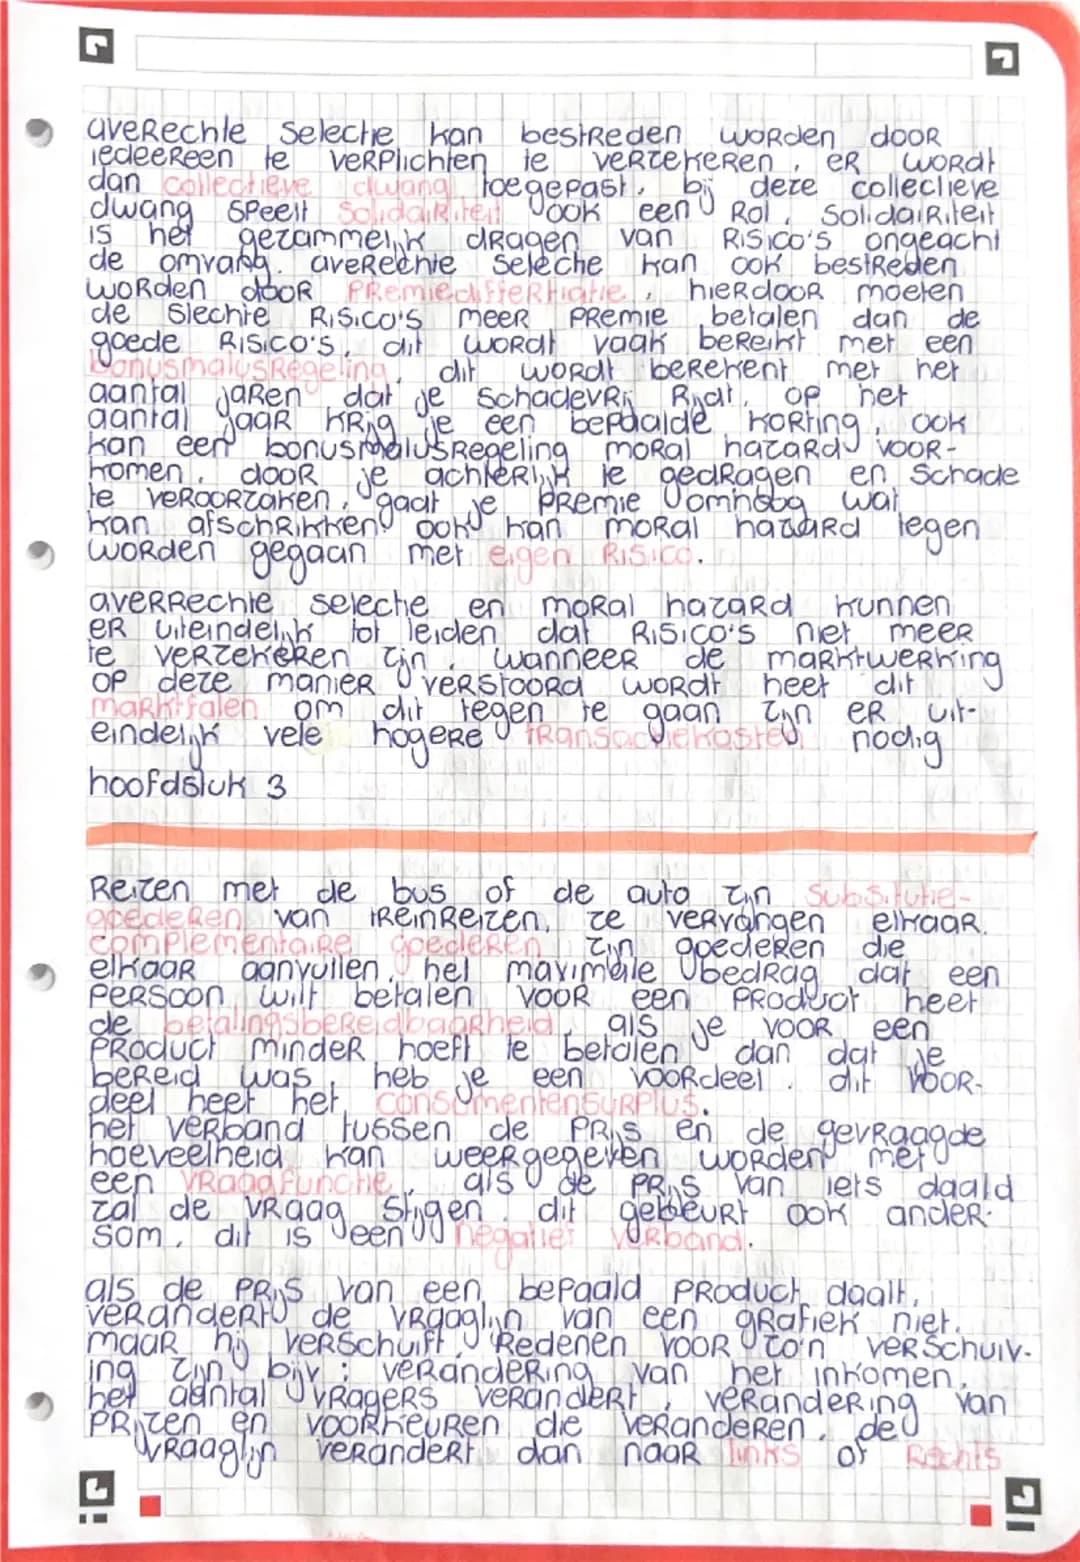 averechte selectie kan bestreden worden door
iedeereen te verplichten te verzekeren, er wordt
dan collectieve dwang toegepast. bij deze collectieve
dwang speelt solidairiteit ook een rol. solidairiteit
is het gezammelijk dragen van risico's ongeacht
de omvang. averechte selectie kan ook bestreden
worden door premiediffertiatie, hierdoor moeten
de slechte risico's meer premie betalen dan de
goede risico's, dit wordt vaak bereikt met een
bonusmalusregeling, dit wordt berekent met het
aantal jaren dat je schadevrij rijdt, op het
aantal jaar krijg je een bepaalde korting, ook
kan een bonusmalusregeling moral hazard voor-
komen. door je achterlijk te gedragen en schade
te veroorzaken, gaat je premie omhoog wat
kan afschrikken. ook kan moral hazard tegen
worden gegaan met eigen risico.
averrechte selectie en moral hazard kunnen
er uiteindelijk tot leiden dat risico's niet meer
te verzekeren zijn. wanneer de marktwerking
op deze manier verstoord wordt heet dit
marktfalen om dit tegen te gaan zijn er uit-
eindelijk vele hogere transactiekosten nodig
hoofdstuk 3
Reizen met de bus of de auto zijn substitutie-
goederen van treinreizen, ze vervangen elkaar.
complementaire goederen zijn goederen die
elkaar aanvullen. het maximale bedrag dat een
persoon wilt betalen voor een product heet
de betalingsbereidbaarheid, als je voor een
product minder hoeft te betalen dan dat je
bereid was, heb je een voordeel. dit voor-
deel heet het consumentensurplus.
het verband tussen de prijs en de gevraagde
hoeveelheid kan weergegeven worden met
een vraagfunctie, als de prijs van iets daald
zal de vraag stijgen. dit gebeurt ook ander-
som. dit is een negatief verband.
als de prijs van een bepaald product daalt,
verandert de vraaglijn van een grafiek niet.
maar hij verschuift. Redenen voor zo'n verschuiv-
ing zijn bijv: verandering van het inkomen,
het aantal vragers verandert, verandering van
prijzen en voorkeuren die veranderen. de
vraaglijn verandert dan naar links of rechts